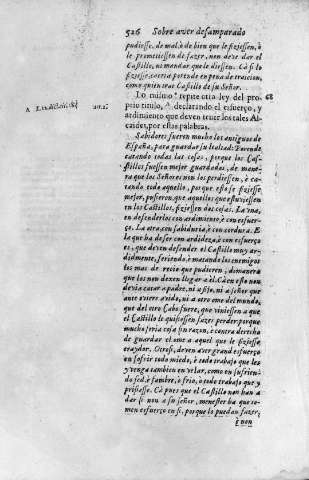 526 Sobre aver desamparado
pudiesse, de mal, è de bien que le fiziessen, ò
le prometiessen de fazer, non deve dar el
Castillo, ni mandar que le diessen. Cà si lo
fiziesse, caeria por ende en pena de traicion,
como quien trae Castillo de su Señor.
Lo mismo repite otra ley del pro- 68
prio titulo, A declarando el esfuerço, y
ardimiento que deven tener los tales Al-
caides, por estas palabras.
Sabidores fueron mucho los antiguos de
España, para guardar su lealtad: Porende
catando todas las cosas, porque los Cas-
tillos fuessen mejor guardados, de mane-
ra que los Señores non los perdiessen, è ca-
tando todo aquello, porque esto se fiziesse
mejor, pusieron, que aquellos que estuviessen
en los Castillos, fiziessen dos cosas. La vna,
en defenderlos con ardimiento, è con esfuer-
ço. La otra, con sabiduria, è con cordura. E
la que ha de ser con ardideza, è con esfuerço
es, que deven defender el Castillo muy ar-
didamente, feriendo, è matando los enemigos
los mas de recio que pudieren, de manera
que los non dexen llegar a èl. Cà en esto non
deven catar a padre, ni a fijo, ni a señor que
ante vviere avido, ni a otro ome del mundo,
que del otro Cabo fuere, que viniessen a que
el Castillo le quisiessen fazer perder porque
mucho seria cosa sin razon, è contra derecho
de guardar el ome a aquel que le fiziesse
traydor. Otrosi, deven aver grande esfuerço
en sofrir todo miedo, è todo trabajo que les
y venga tambien en velar, como en sufrien-
do sed, è fambre, è frio, o todo trabajo que y
prisiesse. Cà pues que el Castillo non han a
dar si non a su señor, menester ha que to-
men esfuerço en si, porque lo puedan fazer,
è non